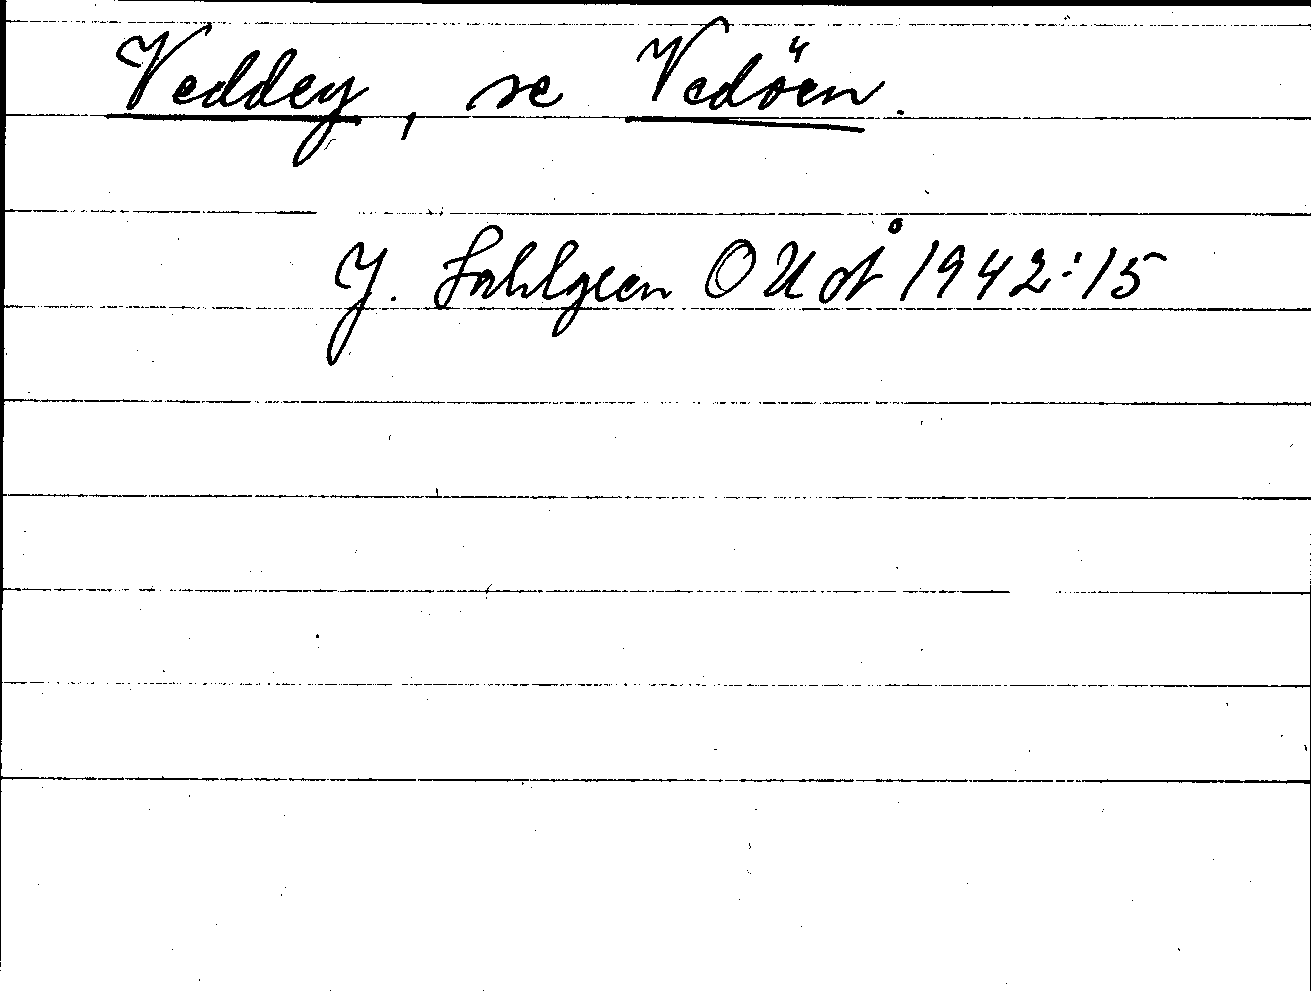 Veddey, se Vedöen.
J. Sahlgren OUÅ 1942:15